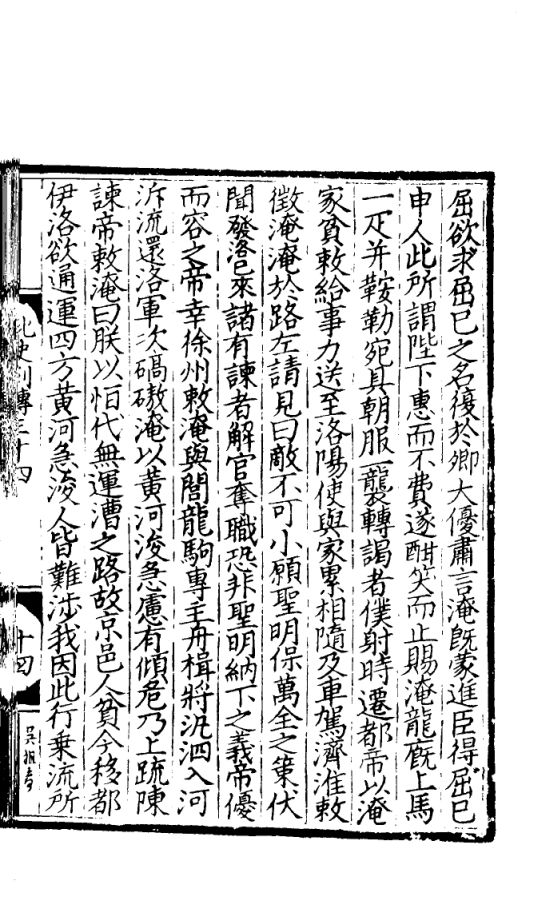 屈欲求屈已之名復於卿大優肅言淹旣蒙進臣得屈已
申人此所謂陛下惠而不費遂酣笑而止賜淹龍厩上馬
一疋并鞍勒宛具朝服一襲轉謁者僕射時遷都帝以淹
家貧敕給事力送至洛陽使與家累相隨及車駕濟淮敕
徵淹淹於路左請見曰敵不可小願聖明保萬全之策伏
聞發洛已來諸有諫者解官奪職恐非聖明納下之義帝優
而容之帝幸徐州敕淹與閭龍駒專主舟楫將汎泗入河
泝流還洛軍次碻磝淹以黄河浚急慮有傾危乃上疏陳
諫帝敕淹曰朕以恒代無運漕之路故京邑人貧今移都
伊洛欲通運四方黄河急浚人皆難涉我因此行乗流所
北史列傳三十四
十四